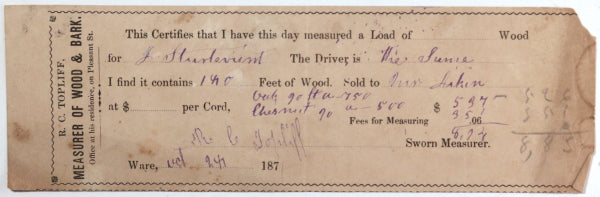 R. C. TOPLIFF,
MEASURER OF WOOD & BARK.
Office at his residence, on Pleasant St.
This Certifies that I have this day measured a Load of Wood
for J Sturtevant The Driver is The Same
I find it contains 180 Feet of Wood. Sold to Mr
Oak 90 ft a 750
at $ per Cord, Chesnut 90 a 500 $ 5 27
Fees for Measuring .06
R C Topliff Sworn Measurer.
Ware, Oct 24 187